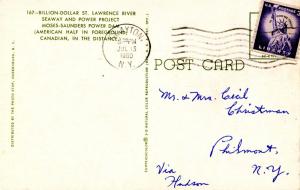 167-BILLION-DOLLAR ST. LAWRENCE RIVER
SEAWAY AND POWER PROJECT
MOSES-SAUNDERS POWER DAM
(AMERICAN HALF IN FOREGROUND
CANADIAN, IN THE DISTANCE)
JUL 13
1960
N.Y.
POST CARD
Mr. & Mrs. Cecil
Christman
Philmont,
N.Y.
Via
Hudson